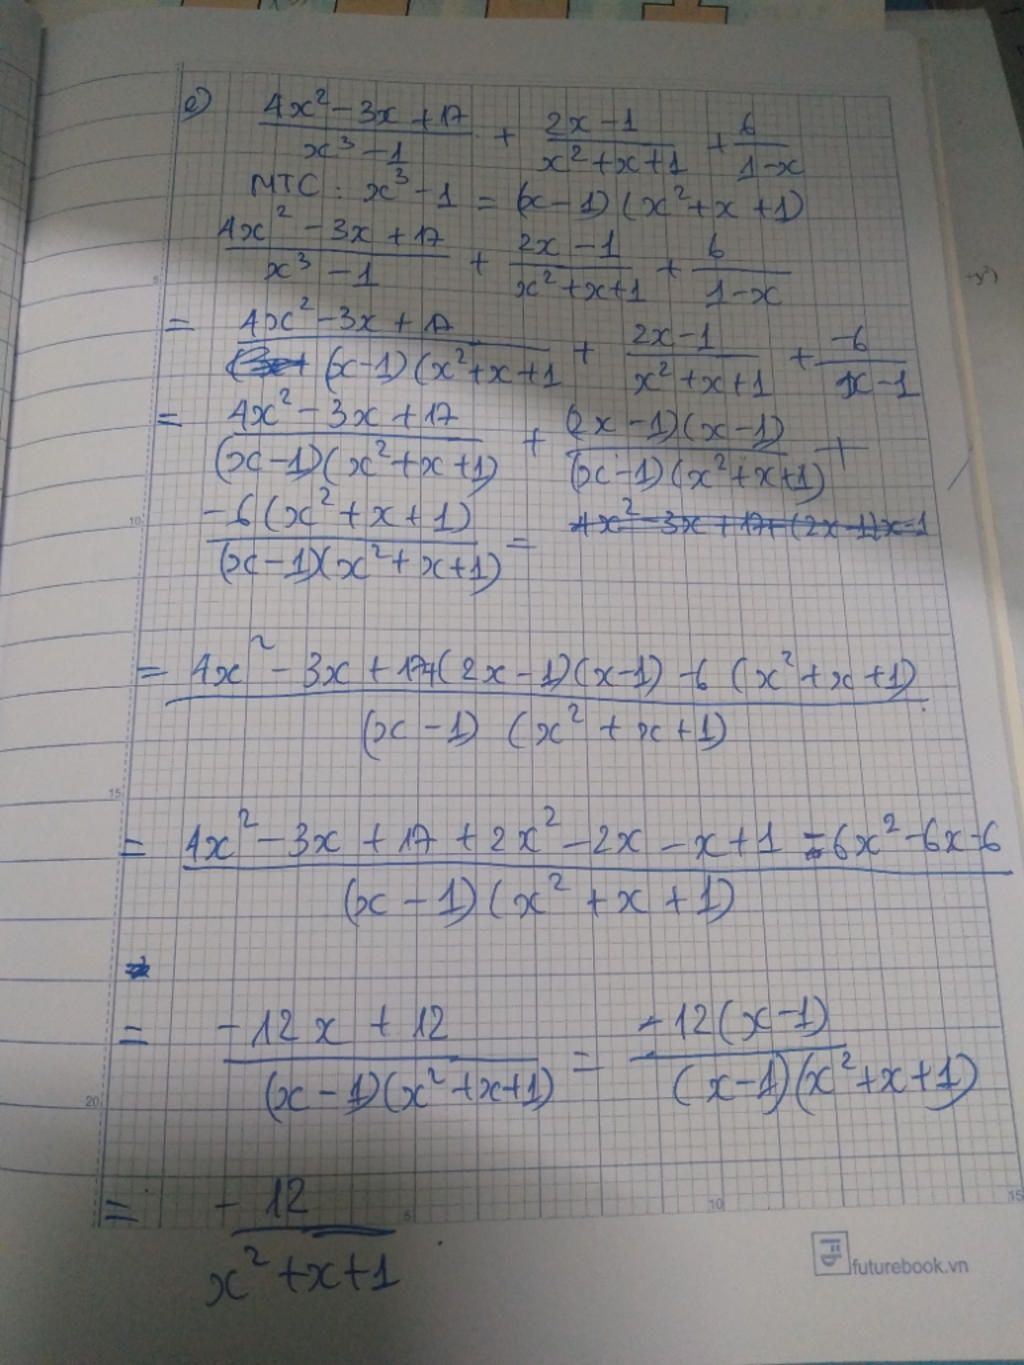 e) (4x² - 3x + 17)/(x³ - 1) + (2x - 1)/(x² + x + 1) + 6/(1 - x)
MTC : x³ - 1 = (x - 1)(x² + x + 1)
(4x² - 3x + 17)/(x³ - 1) + (2x - 1)/(x² + x + 1) + 6/(1 - x)
= (4x² - 3x + 17)/((x - 1)(x² + x + 1) + (2x - 1)/(x² + x + 1) + (-6)/(x - 1)
= (4x² - 3x + 17)/((x - 1)(x² + x + 1)) + ((2x - 1)(x - 1))/((x - 1)(x² + x + 1)) +
(-6(x² + x + 1))/((x - 1)(x² + x + 1)) = 4x² - 3x + 17 + (2x - 1)x - 1
= (4x² - 3x + 17 + (2x - 1)(x - 1) - 6(x² + x + 1))/((x - 1)(x² + x + 1))
= (4x² - 3x + 17 + 2x² - 2x - x + 1 - 6x² - 6x - 6)/((x - 1)(x² + x + 1))
= (-12x + 12)/((x - 1)(x² + x + 1)) = (-12(x - 1))/((x - 1)(x² + x + 1))
= (-12)/(x² + x + 1)
5
10
15
20
5
10
15
futurebook.vn